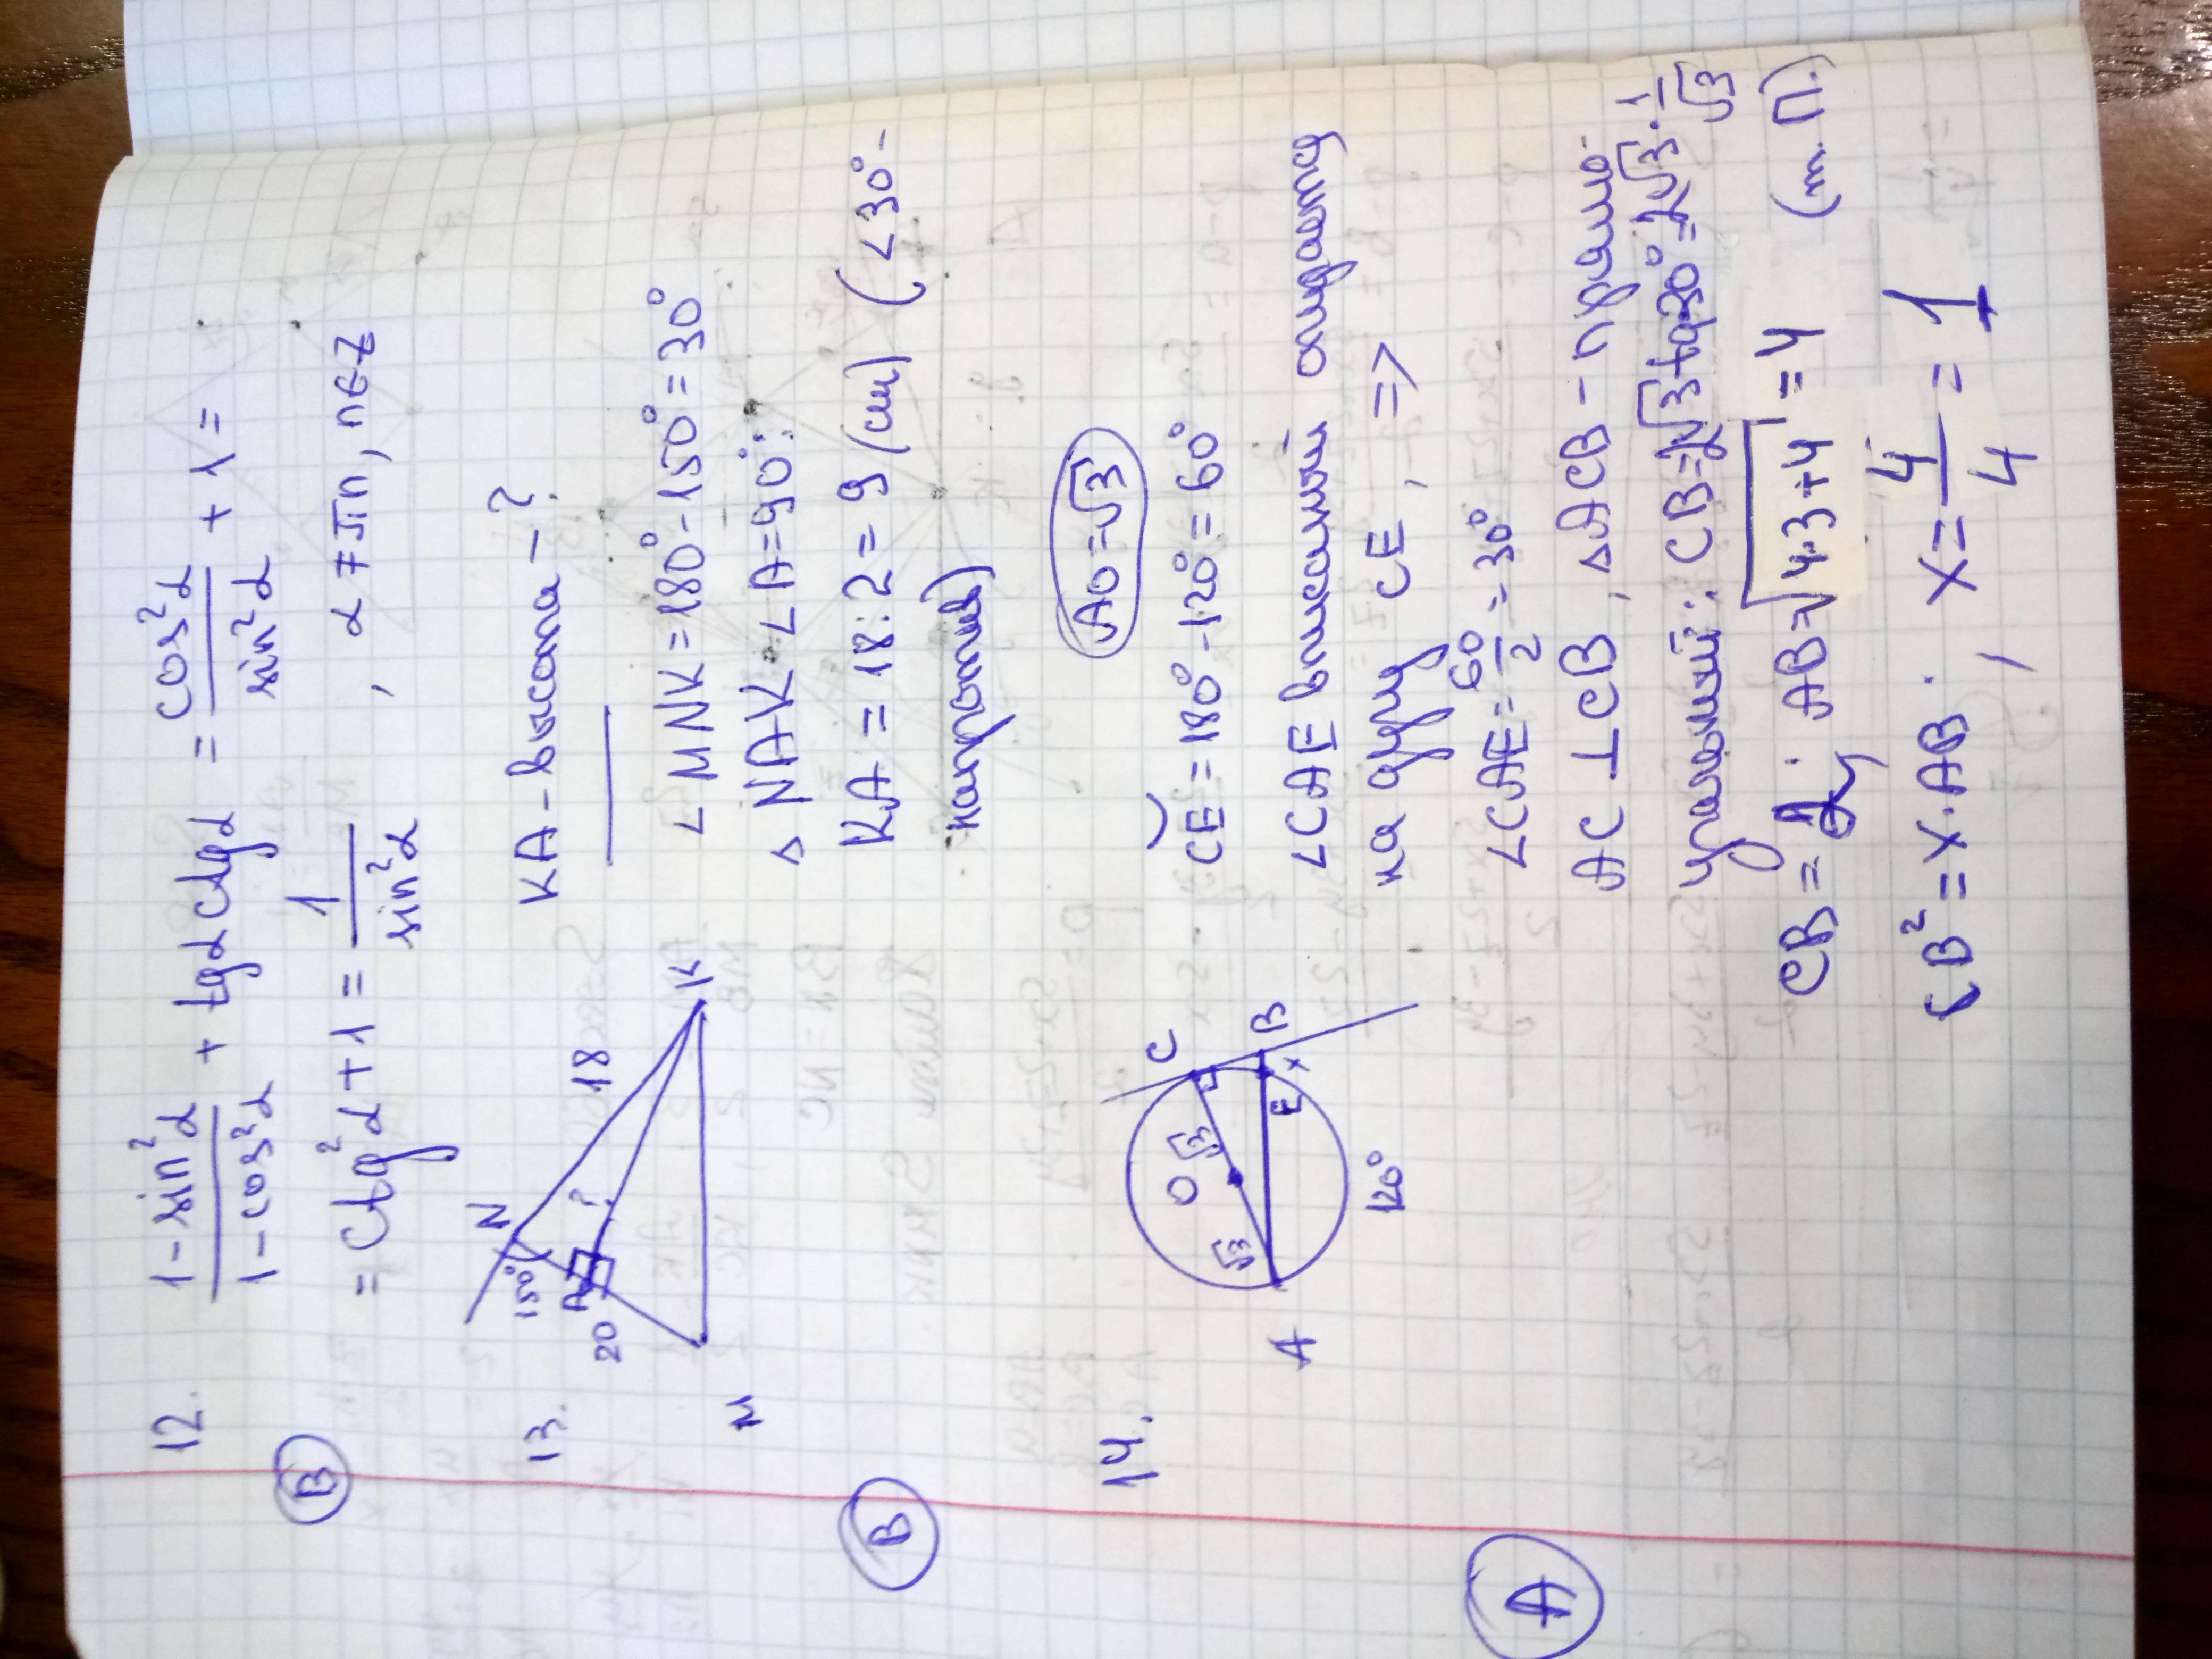 12. \frac{1-sin²α}{1-cos²α} + tgα ctgα = \frac{cos²α}{sin²α} + 1 =
В = ctg²α + 1 = \frac{1}{sin²α} , α ≠ πn, n∈Z
13. N 150° 18 A ? 20 M K
KA - высота - ?
∠MNK = 180° - 150° = 30°
△ NAK ∠A = 90°:
В KA = 18 : 2 = 9 (см) (∠30° -
напротив)
14. C O √3 √3 E B x A 120°
AO = √3
CE = 180° - 120° = 60°
∠CAE вписанный опирающ
на дугу CE, =>
А ∠CAE = \frac{60}{2} = 30°
AC ⊥ CB, △ACB - прямо-
угольный: CB = 2√3 tg30° = 2√3 · \frac{1}{√3}
CB = 2; AB = √4·3+4 = 4 (т. П.)
CB² = x · AB; x = \frac{4}{4} = 1